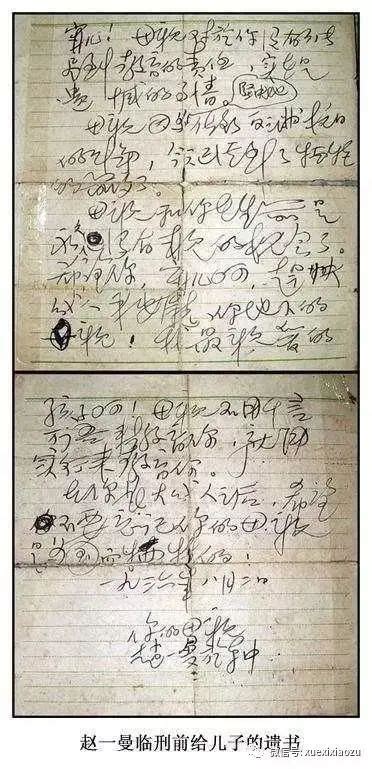 宁儿！母亲对于你没有能
尽到教育的责任，实在是
遗憾的事情。
母亲因坚决地做了反满抗日
的斗争，今天已经到了牺牲
的前夕了。
母亲和你在生前是
永久没有再见的机会了。
希望你，宁儿啊！赶快
成人，来安慰你地下的
母亲！我最亲爱的
孩子啊！母亲不用千言
万语来教育你，就用
实行来教育你。
在你长大成人之后，希望
不要忘记你的母亲
是为国而牺牲的！
一九三六年八月二日
你的母亲
赵一曼于车中
赵一曼临刑前给儿子的遗书
微信号: xuexixiaozu